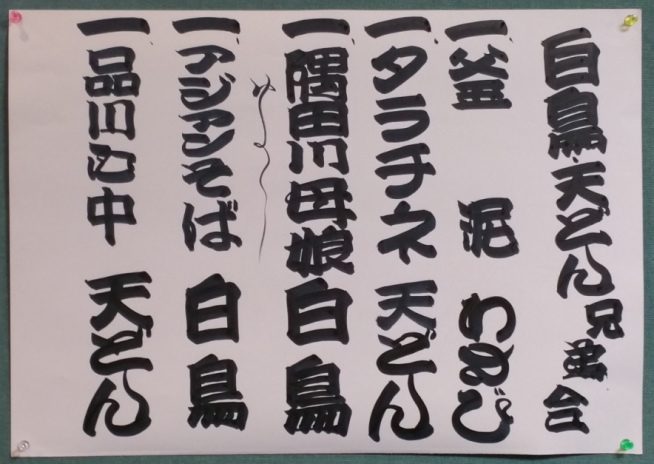 白鳥・天どん兄弟会
一 釜泥 わさび
一 タラチネ 天どん
一 隅田川母娘 白鳥
一 アジアンそば 白鳥
一 品川心中 天どん